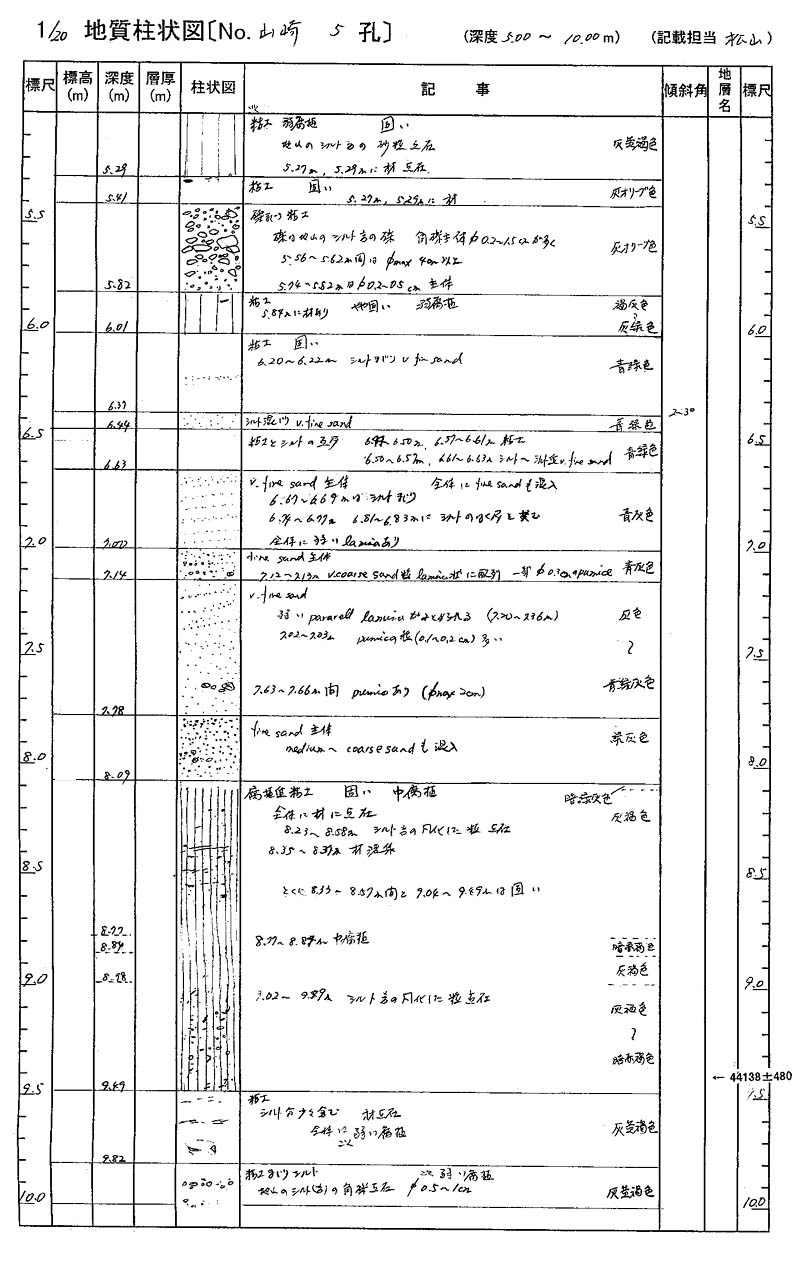 1/20 地質柱状図〔No. 山崎 5 孔〕 (深度 5.00 ~ 10.00 m) (記載担当 松山)
標尺 標高(m) 深度(m) 層厚(m) 柱状図 記事 傾斜角 地層名 標尺
粘土 弱腐植 固い
地山のシルト岩の砂粒点在 灰黄褐色
5.29 5.27m, 5.29mに材点在
粘土 固い
5.41 5.27m, 5.29mに材 灰オリーブ色
5.5 5.5
礫混り粘土
礫は地山のシルト岩の礫 角礫主体 φ0.2~1.5cmが多く 灰オリーブ色
5.56~5.62m間は φmax 4cm以上
5.82 5.74~5.82mはφ0.2~0.5cm 主体
粘土 褐灰色
5.84mに材あり やや固い 弱腐植 ~
6.0 6.01 灰緑色 6.0
粘土 固い
6.20~6.22m シルトまじり v fine sand 青緑色
6.37 2~30
6.44 シルト混じり v. fine sand 青緑色
6.5 粘土とシルトの互層 6.50m, 6.57~6.61m 粘土 6.5
6.63 6.50~6.57m, 6.61~6.63m シルト~シルト質v.fine sand 青緑色
v. fine sand 主体 全体に fine sandも混入
6.67~6.69mはシルトまじり
6.74~6.77m 6.81~6.83mにシルトのうす層を挟む 青灰色
7.0 7.00 全体に弱いlaminaあり 7.0
fine sand 主体
7.14 7.12~7.13m v.coarse sand粒 lamina状に配列 一部φ0.3cmのpumice 青灰色
v. fine sand
弱い pararell laminaがみとめられる (7.20~7.36m) 灰色
7.02~7.03m pumiceの粒(0.1~0.2cm)多い ~
7.5 7.5
7.63~7.66m間 pumiceあり (φmax 2cm) 青緑灰色
7.78
fine sand 主体
medium~coarse sandも混入 紫灰色
8.0 8.0
8.09
腐植質粘土 固い 中腐植 暗緑灰色
全体に材に点在 灰褐色
8.23~8.58m シルト岩の風化した粒点在
8.35~8.37m 材濃集
8.5 8.5
とくに 8.33~8.57m間と9.04~9.49mは固い
8.77 8.77~8.84m 中腐植
8.84 暗赤褐色
8.98 灰褐色
9.0 9.0
9.02~9.49m シルト岩の風化した粒点在 灰褐色
~
暗赤褐色
← 44138±480
9.5 9.49 9.5
粘土
シルト分少々含む 材点在
全体に弱い腐植 灰黄褐色
ごく
9.82
粘土まじりシルト ごく弱い腐植
地山のシルト(岩)の角礫点在 φ0.5~1cm 灰黄褐色
10.0 10.0